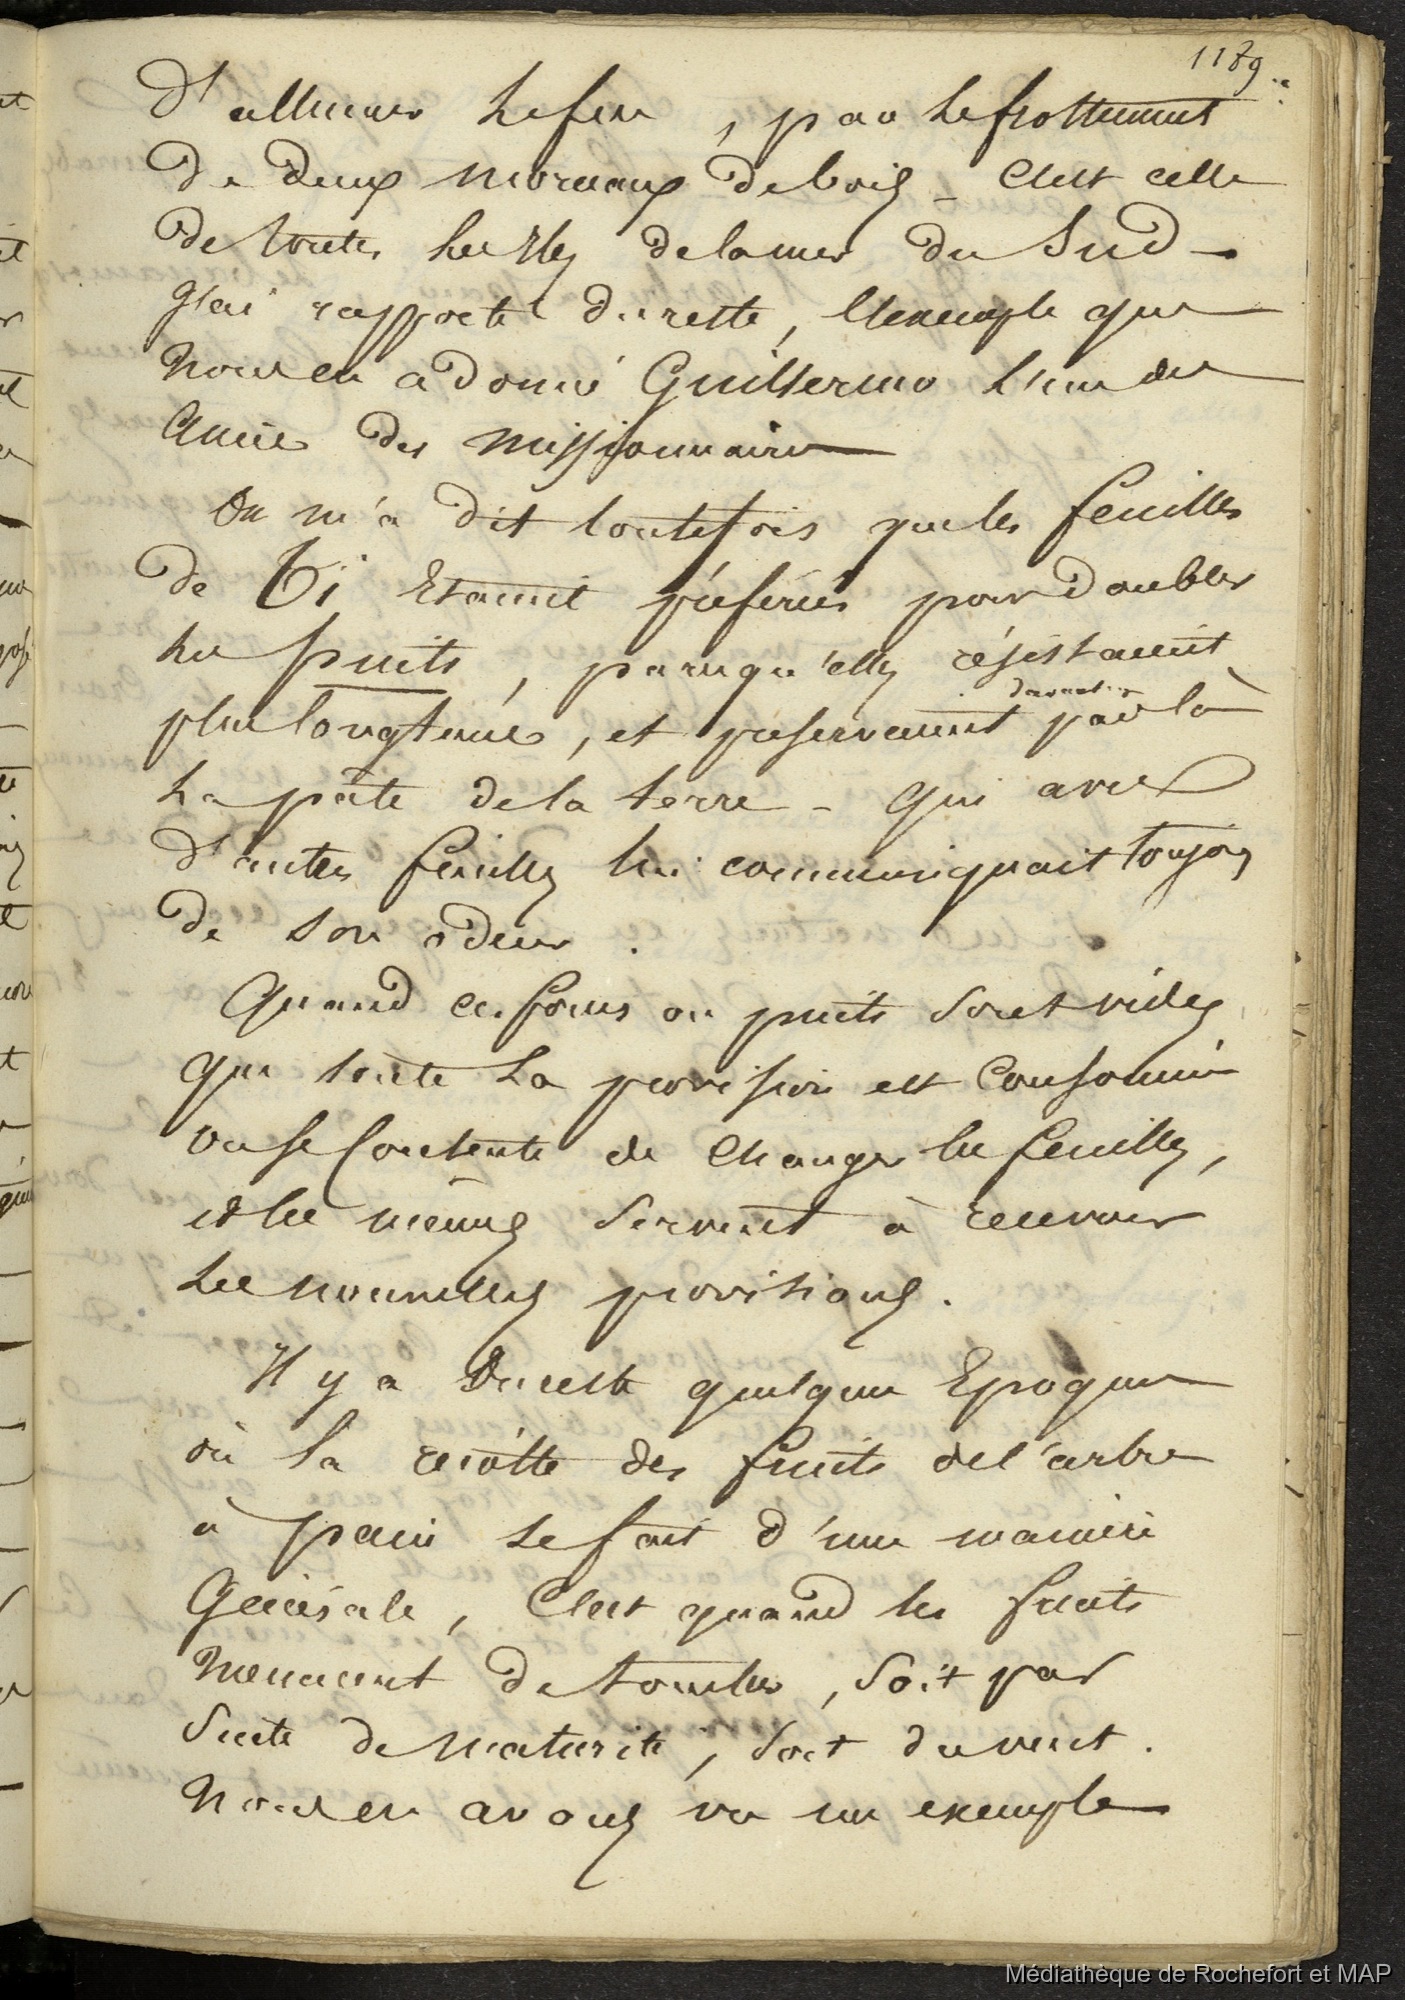 1189
d'allumer le feu, par le frottement
de deux morceaux de bois _ C'est celle
de toutes les Iles de la mer du Sud _
J'ai rapporté du reste, l'exemple que
nous en a donné Guillermo l'un des
Amis des missionnaires
On m'a dit toutefois que les feuilles
de Ti Etaient préférées pour doubler
les puits, parcequ'elles résistaient
davantage
plus longtems, et préservaient par là
la pâte de la terre _ qui avec
d'autres feuilles lui communiquait toujours
de son odeur.
Quand ces fours ou puits sont vides
que toute la provision est consommée
on se contente de changer les feuilles,
et les mêmes servent à recevoir
les nouvelles provisions.
Il y a du reste quelques Epoques
où la récolte des fruits de l'arbre
à pain se fait d'une manière
Générale, C'est quand les fruits
menacent de tomber, soit par
suite de maturité, soit du vent.
Nous en avons vu un exemple
Médiathèque de Rochefort et MAP